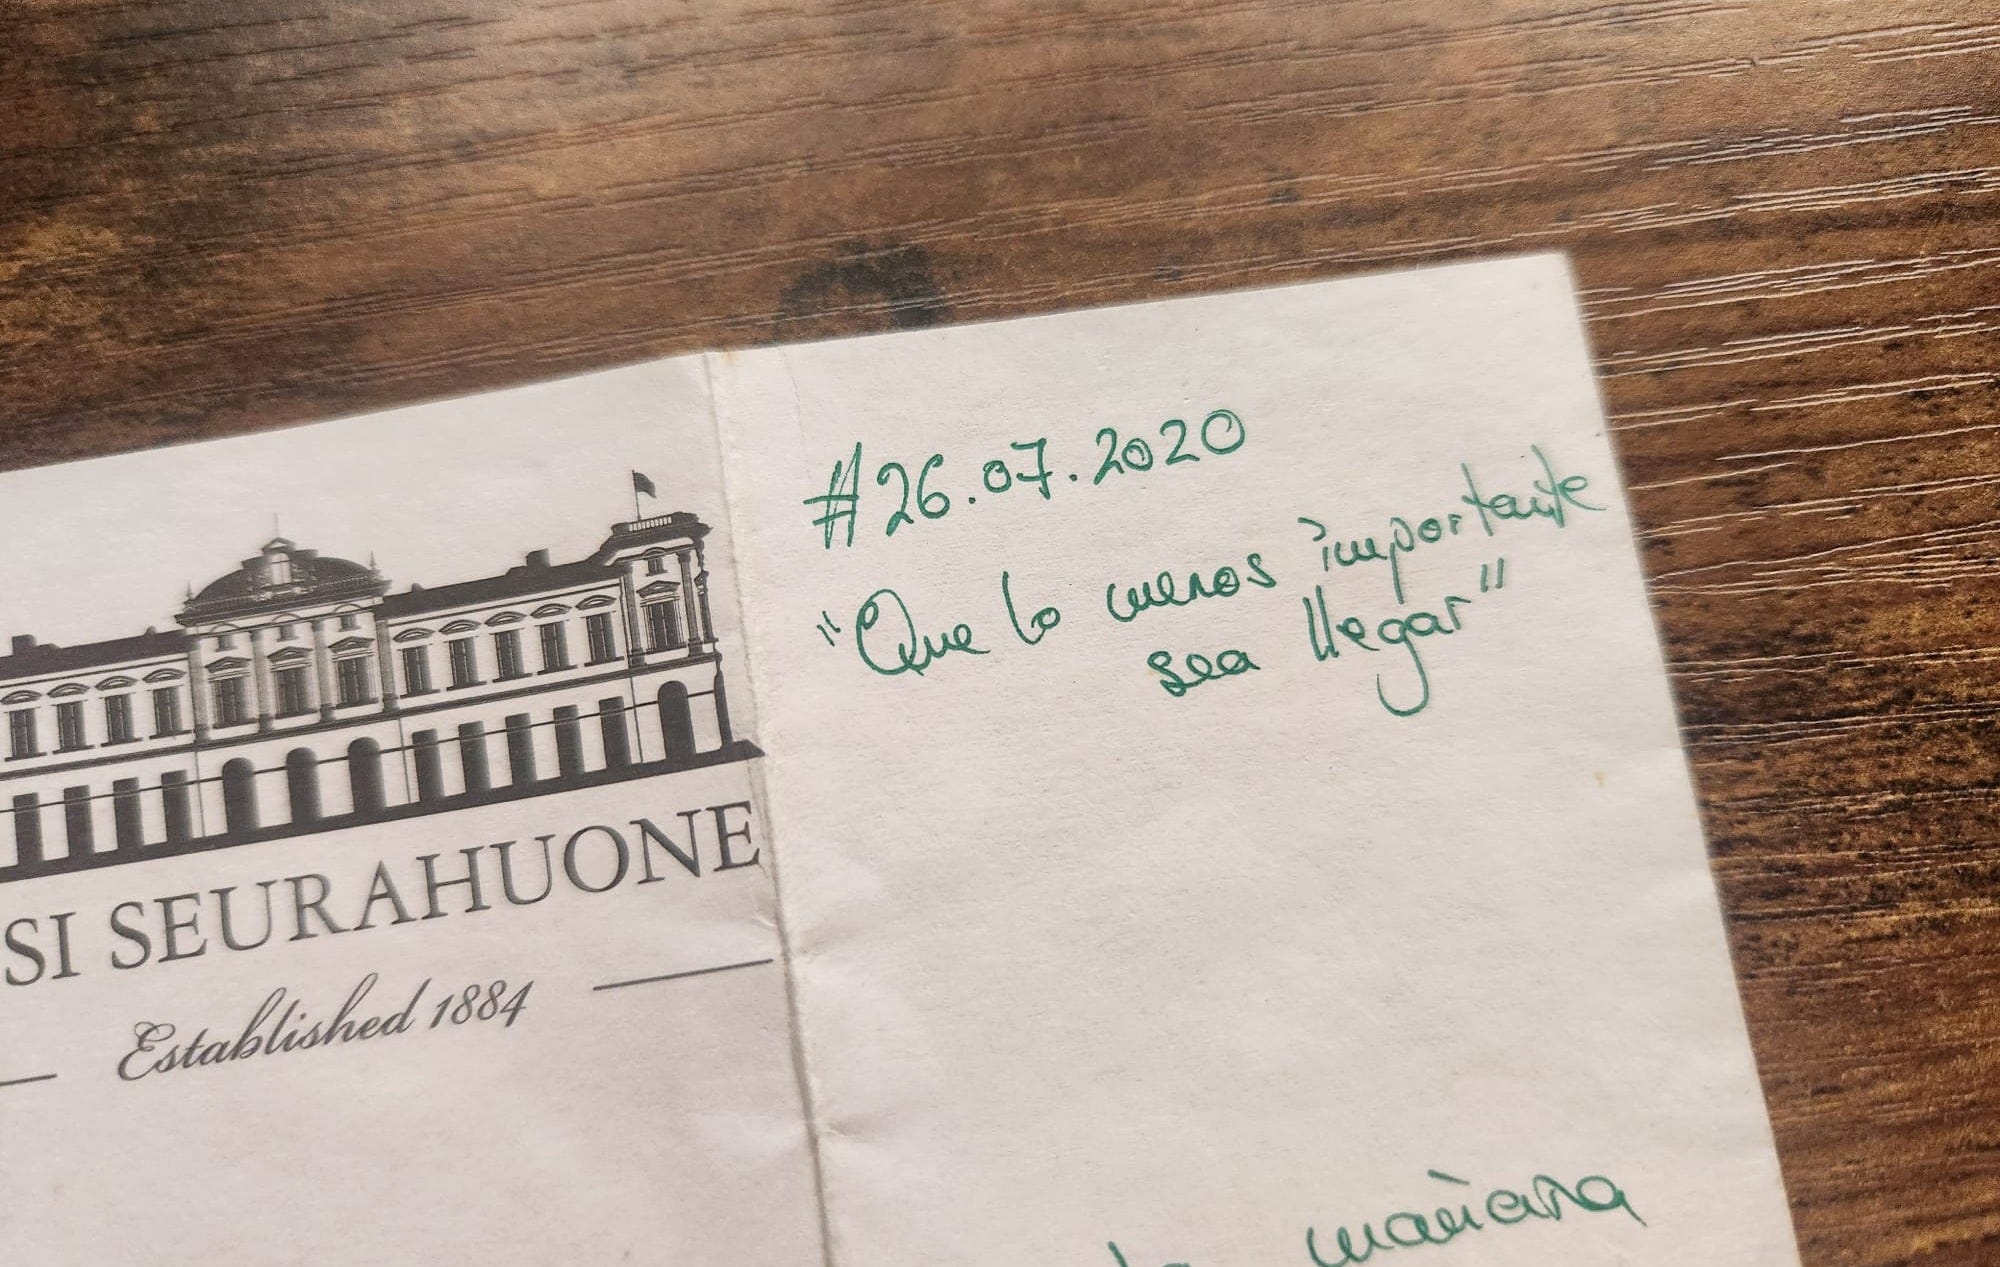 SI SEURAHUONE
Established 1884
#26.07.2020
"Que lo menos importante
sea llegar"
mañana